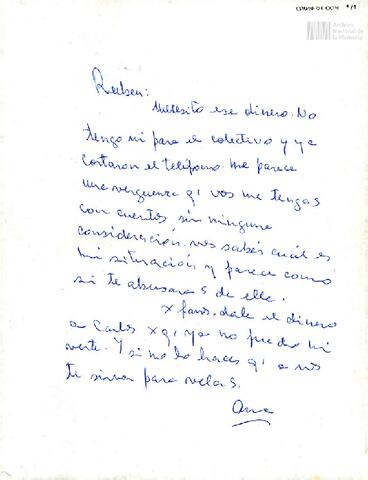 1/1
Archivo
Nacional de
la Memoria
Ruben:
Necesito ese dinero. No
tengo ni para el colectivo y ya
cortaron el teléfono. me parece
una verguenza q' vos me tengas
con cuentos sin ninguna
consideración. vos sabés cuál es
mi situación y parece como
si te abusaras de ella.
x favor. dale el dinero
a Carlos x q' ya no puedo ni
verte. Y si no lo haces q' a vos
te sirva para velas.
Ana